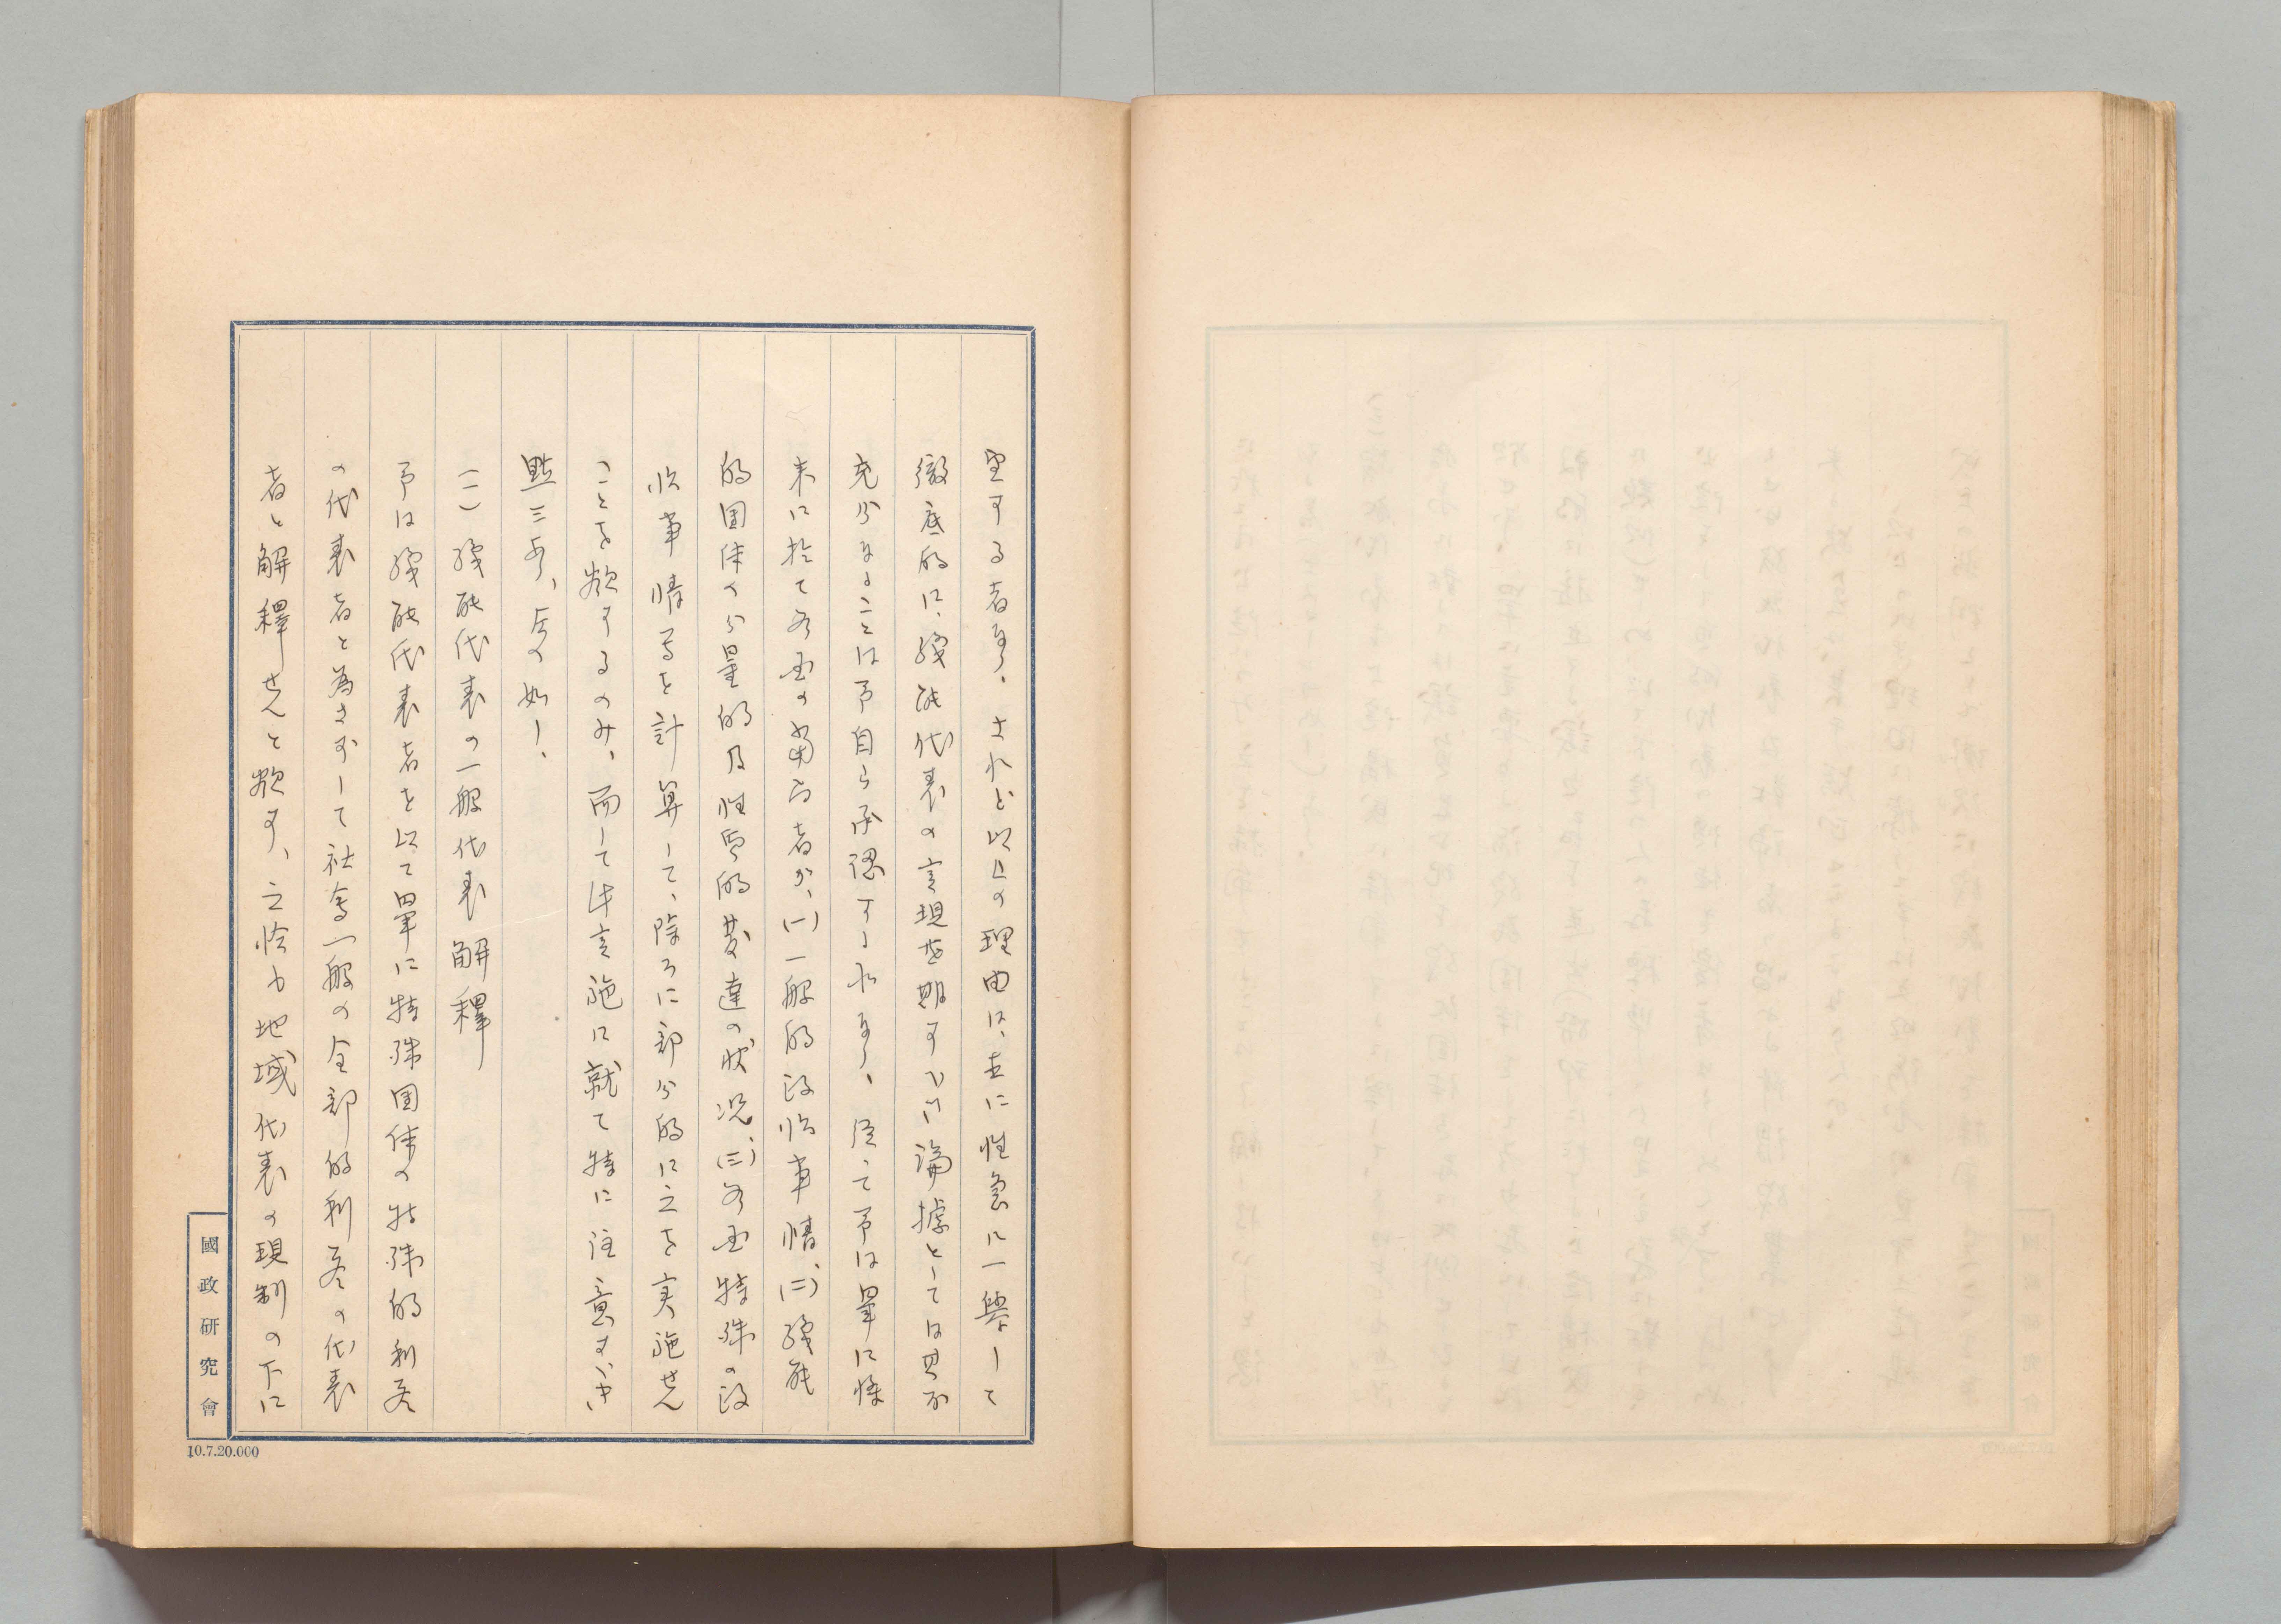 望する者なり、されど以上の理由は、直に性急に一擧して
徹底的に、職能代表の実現を期すべき論據としては尚不
充分なることは予自ら承認する所なり、従て予は單に将
来に於て各国の当局者が、(一)一般的政治事情、(二)職能
的団体の分量的及性質的發達の状況、(三)各国特殊の政
治事情等を計算して、除ろに部分的に之を実施せん
ことを欲するのみ、而して此実施に就て特に注意すべき
點三あり、左の如し、
(一) 職能代表の一般代表解釋
予は職能代表者を以て單に特殊団体の特殊的利益
の代表者と為さずして社會一般の全部的利益の代表
者と解釋せんと欲す、之恰も地域代表の現制の下に
國政研究會
10.7.20.000